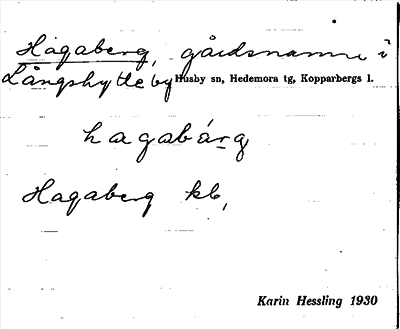 Hagaberg, gårdsnamn i
Långshytte by Husby sn, Hedemora tg, Kopparbergs l.
hagabárg
Hagaberg kb,
Karin Hessling 1930